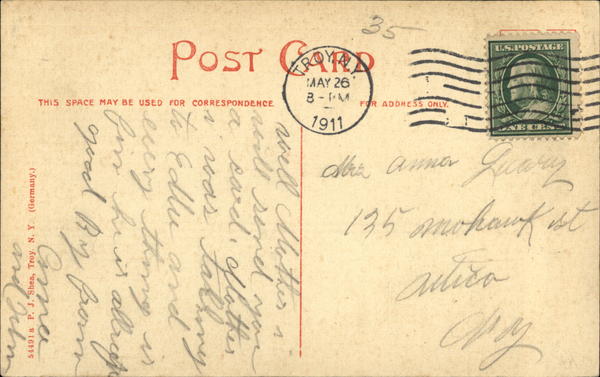 35
POST CARD
TROY, N.Y.
MAY 26
8 - PM
1911
U.S. POSTAGE
ONE CENT
THIS SPACE MAY BE USED FOR CORRESPONDENCE.
FOR ADDRESS ONLY.
well Mother i
will send you
a card. Mother
i was talking
to Eddie and
every thing is
fine he is allright
good By from
Anna
and John
Mrs Anna Leary
135 mohawk st
utica
N y
54491 a P. J. Shea, Troy, N. Y. (Germany.)